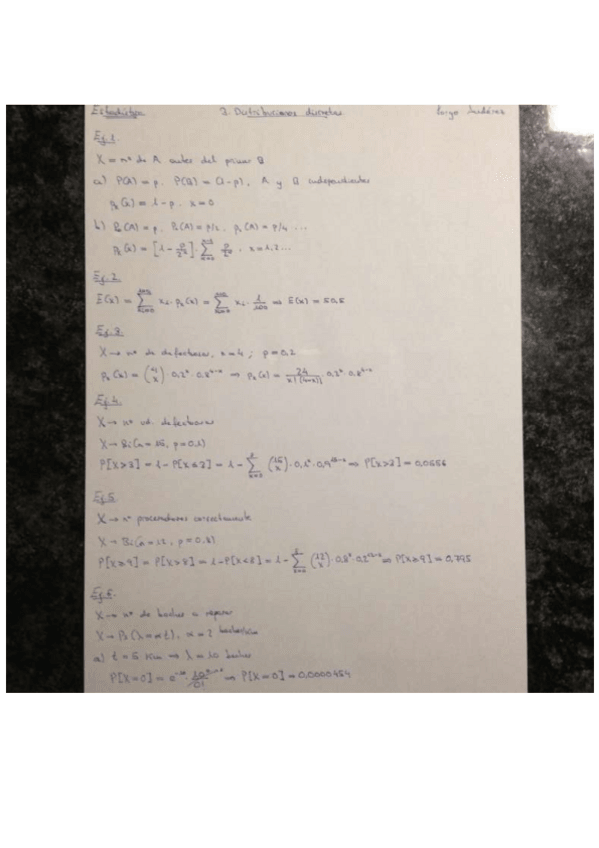 Estadística 3. Distribuciones discretas
Ej.1.
X = nº de A antes del primer B
a) P(A) = p, P(B) = (1-p), A y B independientes
pₓ(x) = 1-p, x=0
b) P₀(A) = p, P₁(A) = p/2, P₂(A) = p/4 ...
Ej.2.
E(x) = Σ xᵢ · pₓ(x) = Σ xᵢ · 1/100 ⇒ E(x) = 50,5
Ej.3.
X → nº de defectuosos, n=4; p=0,2
pₓ(x) = (4 x) · 0,2ˣ · 0,8⁴⁻ˣ ⇒ pₓ(x) = 24/x!(4-x)! · 0,2ˣ · 0,8⁴⁻ˣ
Ej.4.
X → nº ud. defectuosas
X → Bi(n=15, p=0,1)
P[X>3] = 1-P[X≤3] = 1 - Σ (15 x) · 0,1ˣ · 0,9¹⁵⁻ˣ ⇒ P[X>3] = 0,0556
Ej.5.
X → nº procesadores correctamente
X → Bi(n=12, p=0,8)
P[X≥9] = P[X>8] = 1-P[X≤8] = 1 - Σ (12 x) · 0,8ˣ · 0,2¹²⁻ˣ ⇒ P[X≥9] = 0,795
Ej.6.
X → nº de baches a reparar
X → Ps(λ=αt), α = 2 baches/km
a) t = 5 km ⇒ λ = 10 baches
P[X=0] = e⁻¹⁰ · 10⁰/0! ⇒ P[X=0] = 0,0000454